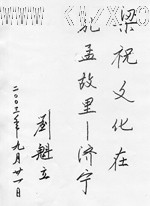 梁祝文化在
孔孟故里—济宁
刘魁立
二〇〇三年九月廿一日